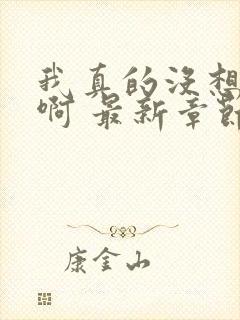 我真的没想
啊 最新章节
康金山